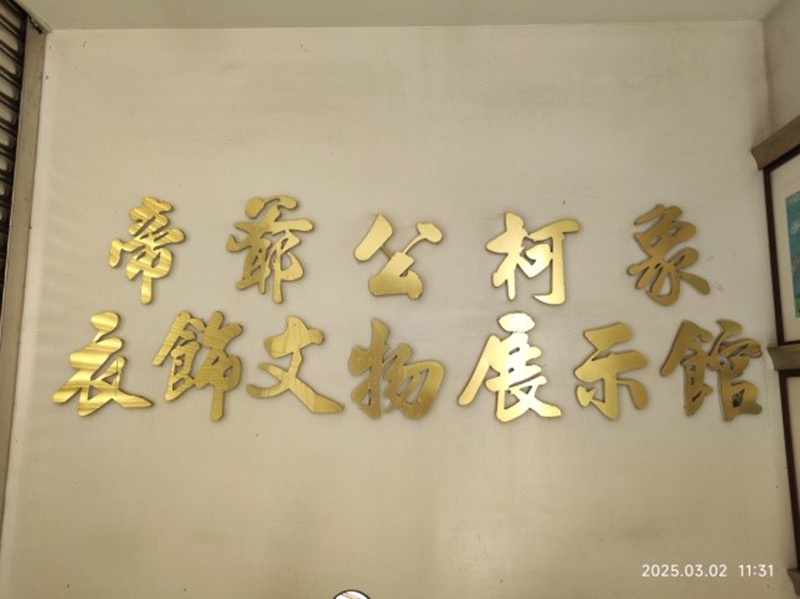 帝爺公柯象
衣飾文物展示館
2025.03.02 11:31